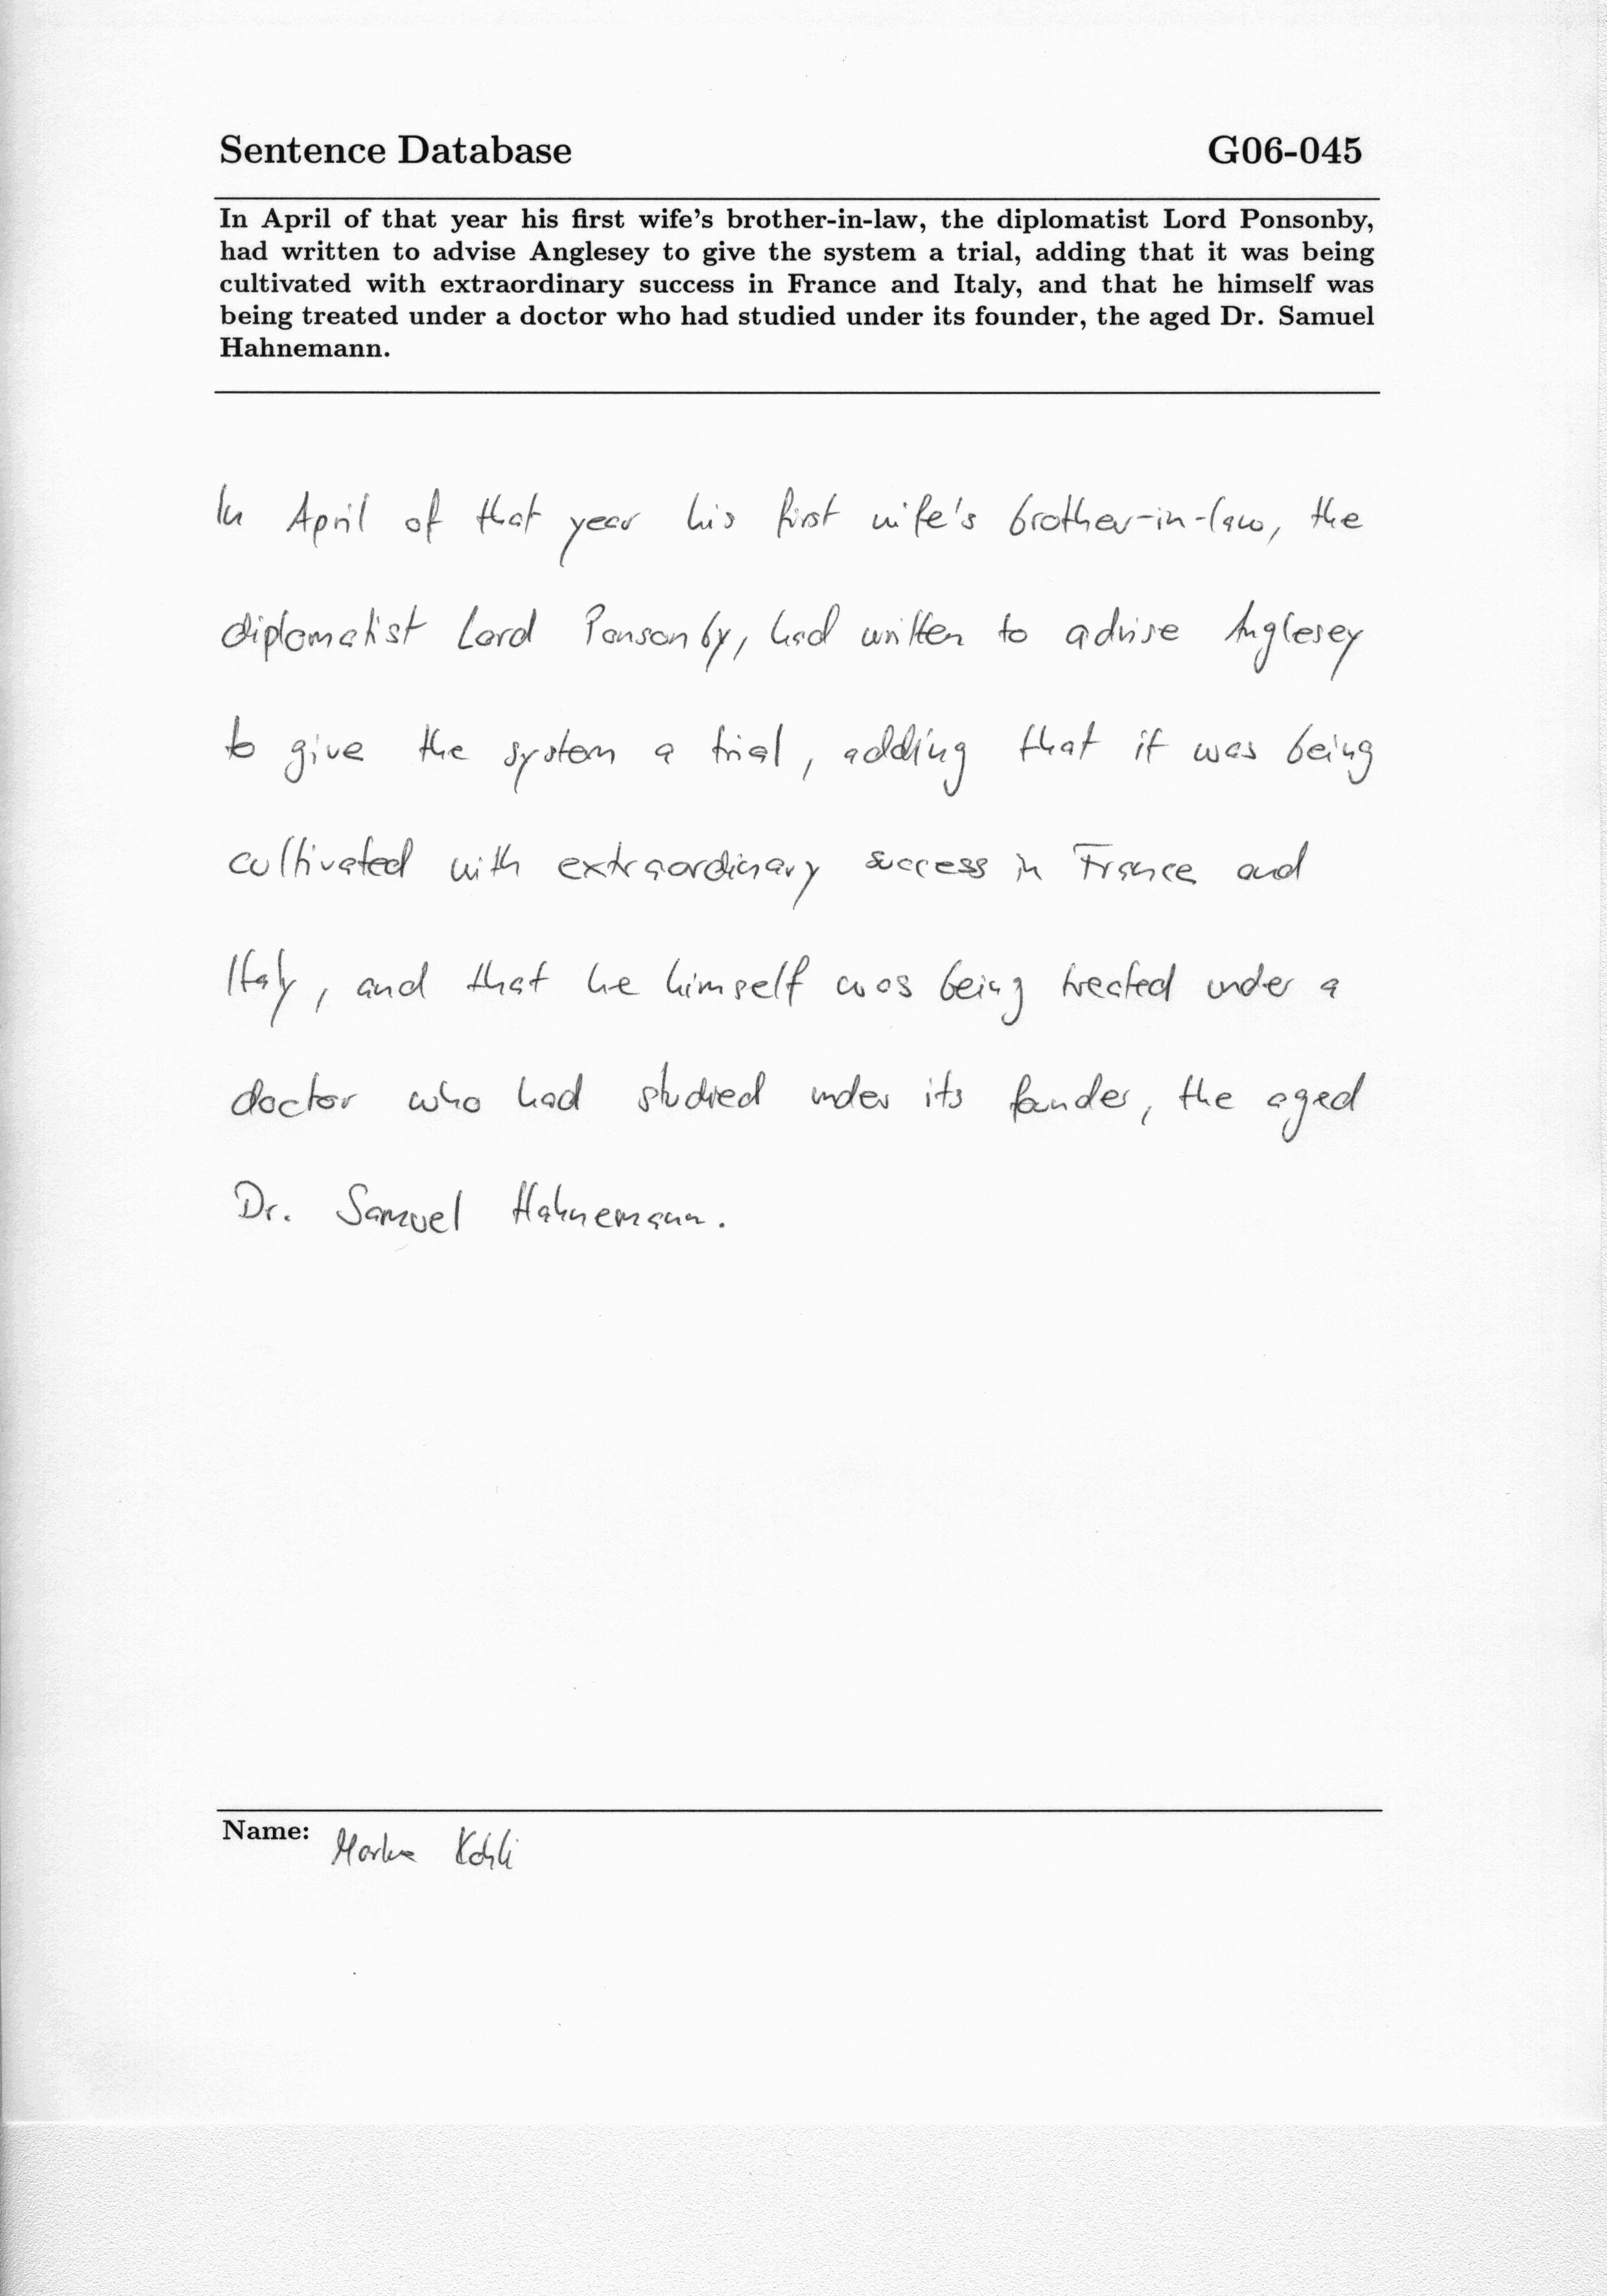 Sentence Database G06-045
In April of that year his first wife's brother-in-law, the diplomatist Lord Ponsonby,
had written to advise Anglesey to give the system a trial, adding that it was being
cultivated with extraordinary success in France and Italy, and that he himself was
being treated under a doctor who had studied under its founder, the aged Dr. Samuel
Hahnemann.
In April of that year his first wife's brother-in-law, the
diplomatist Lord Ponsonby, had written to advise Anglesey
to give the system a trial, adding that it was being
cultivated with extraordinary success in France and
Italy, and that he himself was being treated under a
doctor who had studied under its founder, the aged
Dr. Samuel Hahnemann.
Name: